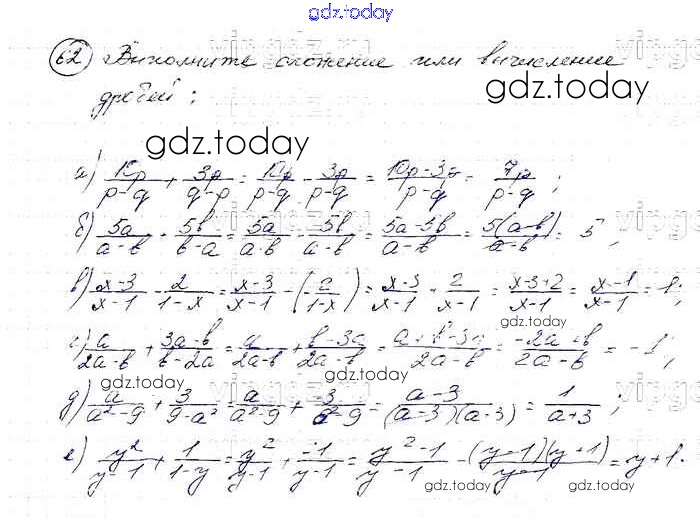 gdz.today
62 Выполните сложение или вычисление
дробей:
gdz.today
gdz.today
а) 10p/(p-q) + 3p/(q-p) = 10p/(p-q) - 3p/(p-q) = (10p-3p)/(p-q) = 7p/(p-q)
б) 5a/(a-b) + 5b/(b-a) = 5a/(a-b) - 5b/(a-b) = (5a-5b)/(a-b) = 5(a-b)/(a-b) = 5;
в) (x-3)/(x-1) - 2/(1-x) = (x-3)/(x-1) - (-2/(1-x)) = (x-3)/(x-1) + 2/(x-1) = (x-3+2)/(x-1) = (x-1)/(x-1) = 1;
gdz.today
г) a/(2a-b) + (3a-b)/(b-2a) = a/(2a-b) + (b-3a)/(2a-b) = (a+b-3a)/(2a-b) = (-2a+b)/(2a-b) = -1;
gdz.today
gdz.today
д) a/(a²-9) + 3/(9-a²) = a/(a²-9) + -3/(a²-9) = (a-3)/((a-3)(a-3)) = 1/(a+3);
gdz.today
е) y²/(y-1) + 1/(1-y) = y²/(y-1) + -1/(y-1) = (y²-1)/(y-1) = (y-1)(y+1)/(y-1) = y+1.
gdz.today
gdz.today